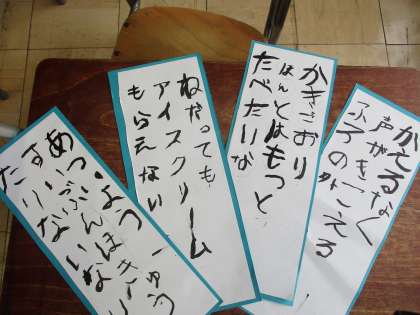 かえるなく
声がきこえる
ふろの外
かきごおり
ほんとはもっと
たべたいな
ねだっても
アイスクリーム
もらえない
あついよう
すいぶんほきゅう
たりないな